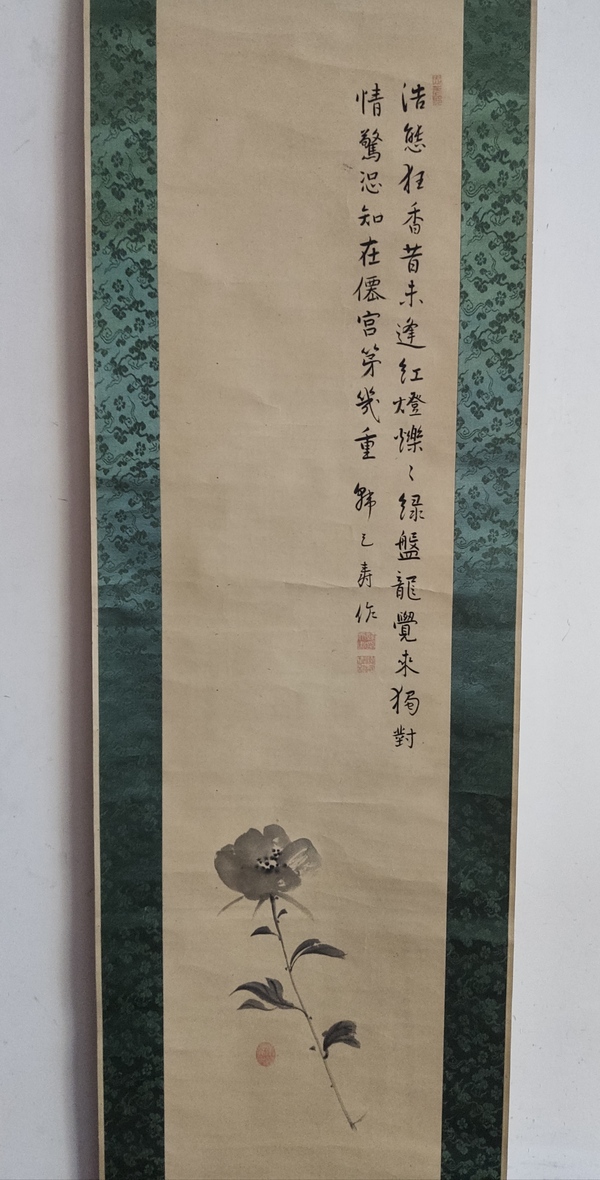 浩態狂香昔未逢紅燈爍〻緑盤龍覺来獨對
情驚恐知在僊宮第幾重 寿作